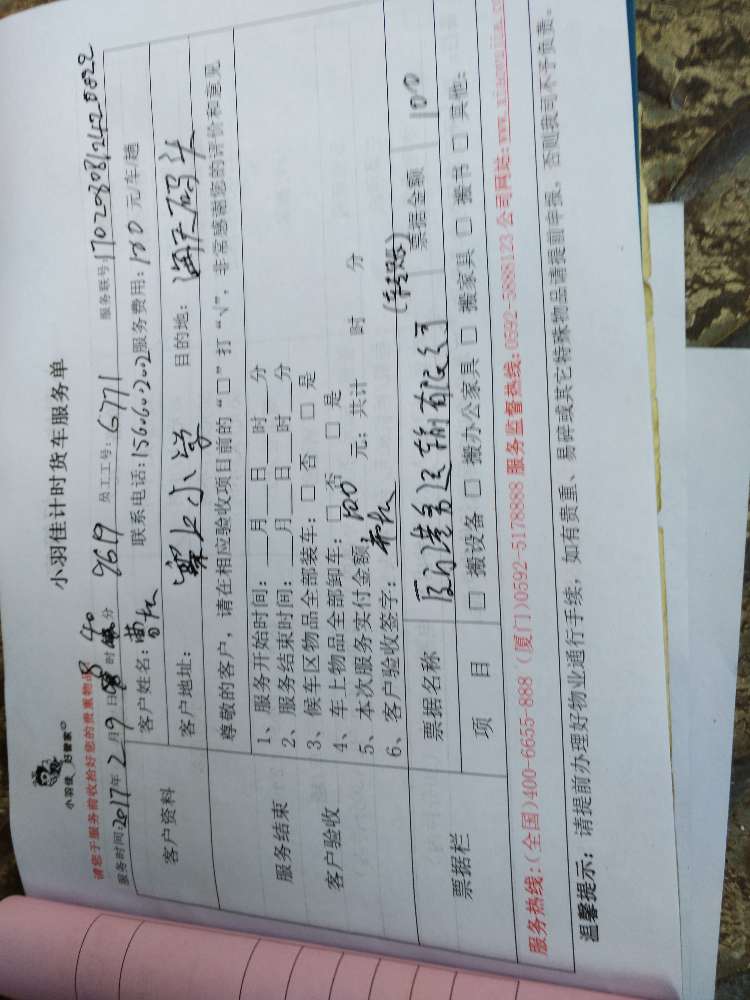 小羽佳 好管家
小羽佳计时货车服务单
请您于服务前收拾好您的贵重物品
服务时间:2017年2月9日 时40分 9619 员工工号:6771 服务联号:
客户资料 客户姓名:曹 联系电话:15606002002 服务费用:100元/车/趟
客户地址: 寨上小学 目的地: 海天码头
尊敬的客户,请在相应验收项目前的“□”打“√”,非常感谢您的评价和意见
服务结束
客户验收
1、服务开始时间:__月__日__时__分
2、服务结束时间:__月__日__时__分
3、候车区物品全部装车:□ 否 □ 是
4、车上物品全部卸车:□ 否 □ 是
5、本次服务实付金额 100 元; 共计 时 分
6、客户验收签字:
票据栏 票据名称 运输有限公司 票据金额 100
项 目 □ 搬设备 □ 搬办公家具 □ 搬家具 □ 搬书 □ 其他:
服务热线:(全国)400-6655-888 (厦门)0592-5178888 服务监督热线:0592-5888123 公司网站:
温馨提示:请提前办理好物业通行手续,如有贵重、易碎或其它特殊物品请提前申报,否则我司不予负责。